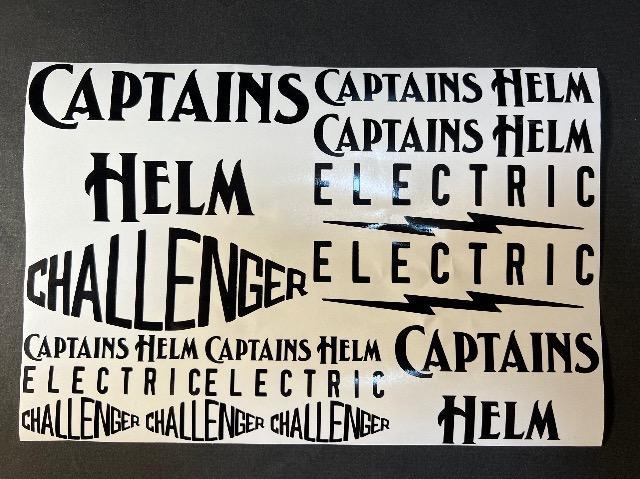 CAPTAINS
HELM
CHALLENGER
CAPTAINS HELM
CAPTAINS HELM
ELECTRIC
ELECTRIC
CAPTAINS HELM CAPTAINS HELM
ELECTRIC ELECTRIC
CHALLENGER CHALLENGER CHALLENGER
CAPTAINS
HELM